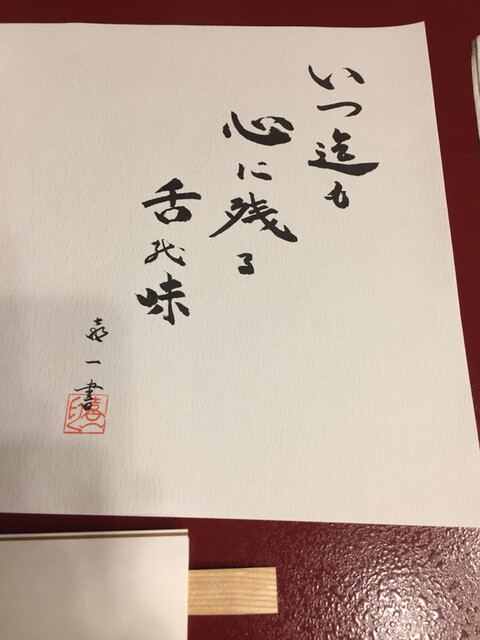 いつ迄も
心に残る
舌の味
喜一書
喜一印